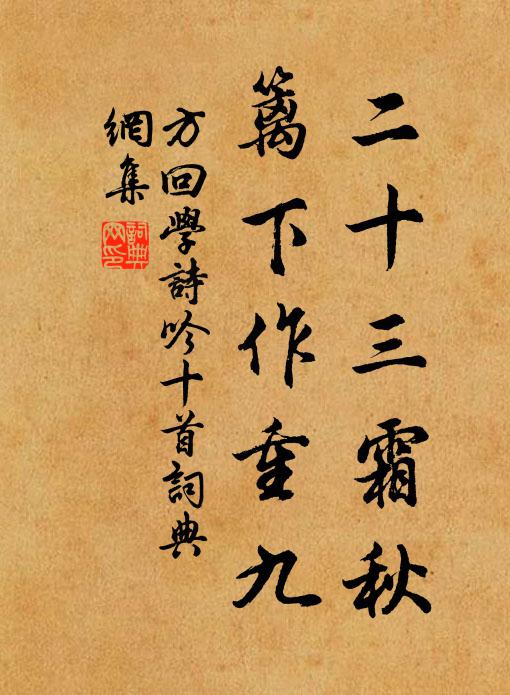 二十三霜秋
籬下作重九
方回學詩吟十首詞典
網集
詞典
网印